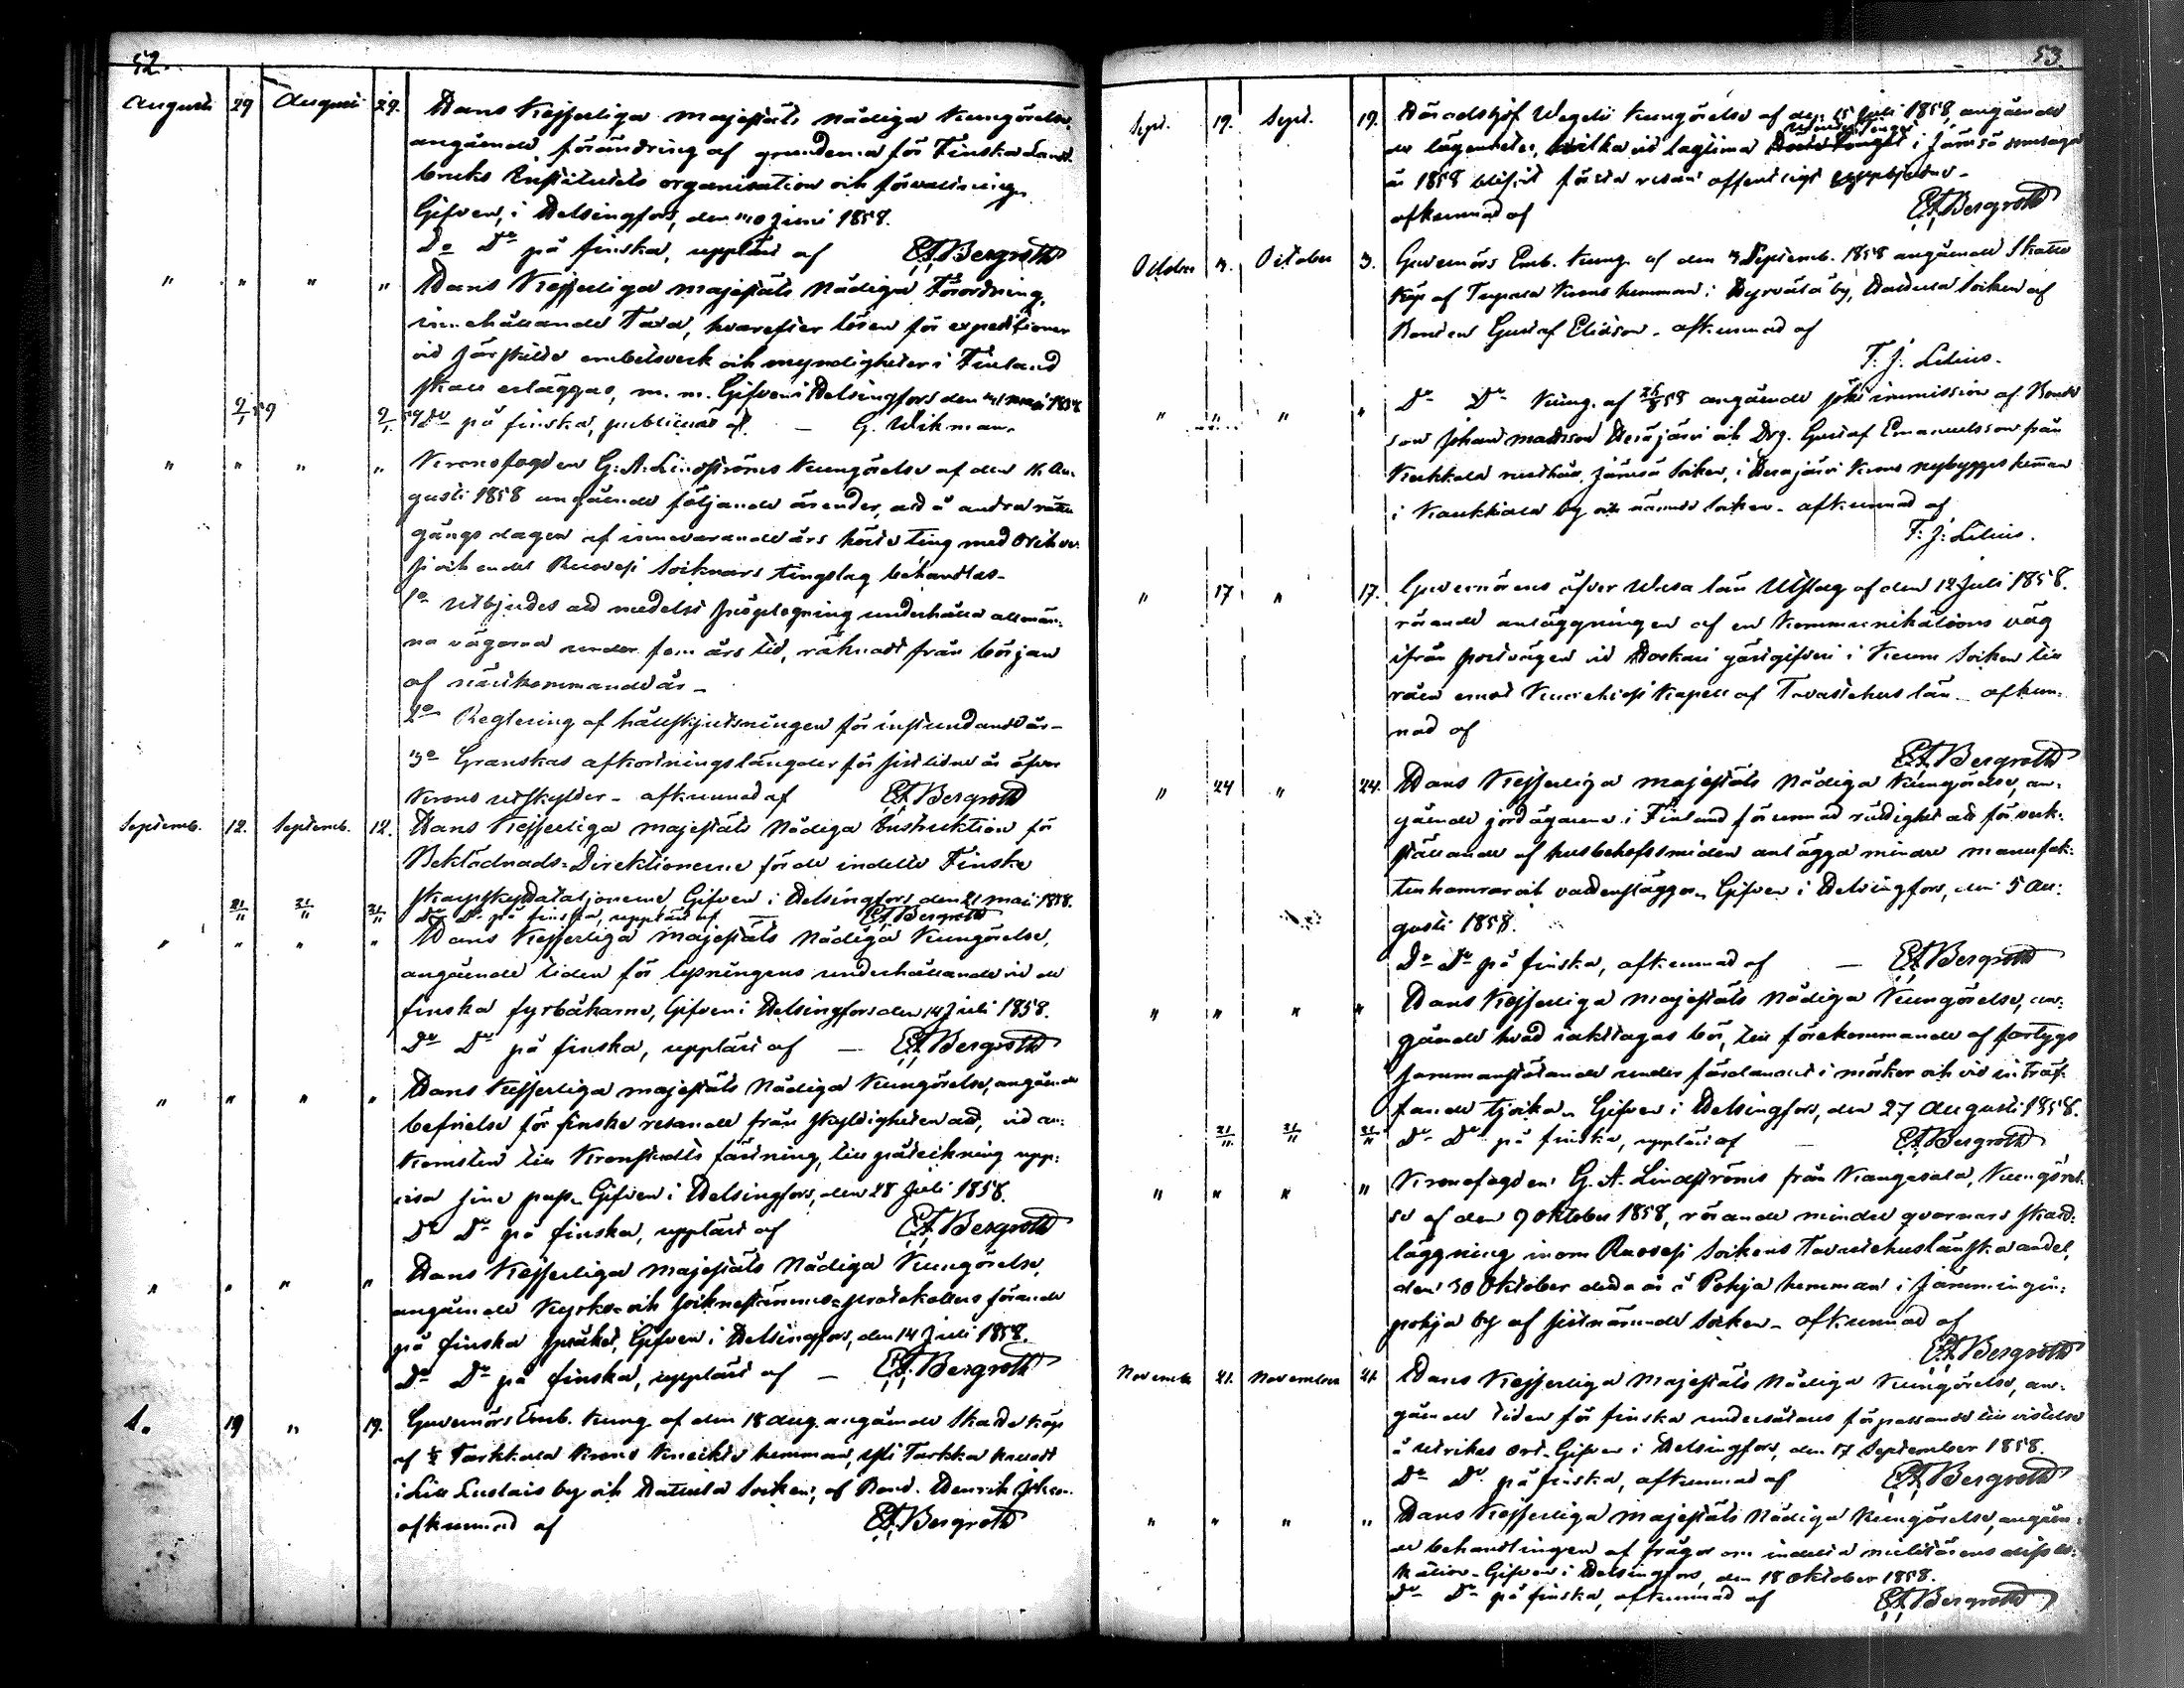 52.
Augusti 29 Augusti 29. Hans Kejserliga Majestäts Nådiga Kungörelse,
angående förändring af grunderna för Finska Landt
bruks Institutets organisation och förvaltning.
Gifven, i Helsingfors, den 10 Juni 1858.
Do Do på finska, uppläst af E.A. Bergroth
" " " " Hans Kejserliga Majestäts Nådiga Förordning,
innehållande Taxa, hvarefter lösen för expeditioner
vid särskilde embetsverk och myndigheter i Finland
skall erläggas, m. m. Gifven i Helsingfors den 31 Maj 1858
9/1 59 9/1 59 Do på finska, publicerad af — G. Wikman.
" " " " Kronofogden G. A. Lindströms Kungörelse af den 16 Au-
gusti 1858 angående följande ärender, ad å andra rätte
gångs dagen af innevarande års höste ting med Orihve-
si och endel Ruovesi Socknars tingslag behandlas.
1o Utbjudes ad medelst snöplogning underhålla allmän-
na vägarna under fem års tid, räknadt från början
af nästkommande år.
2o Reglering af hållskjutsningen för instundande år.
3o Granskas afkortningslängder för sistlidne år öfver
Krono utskylder. afkunnad af E.A. Bergroth
Septemb. 12. Septemb. 12. Hans Kejserliga Majestäts Nådiga Instruktion för
Beklädnads-Direktionerne för de indelte Finska
Skarpskyttebataljonerne Gifven i Helsingfors den 21 Maj 1858.
21/11 21/11 21/11 Do Do på finska, uppläst af — E.A. Bergroth
" " " " Hans Kejserliga Majestäts Nådiga Kungörelse,
angående tiden för lysningens underhållande vid de
finska fyrbåkarne, Gifven i Helsingfors den 14 Juli 1858.
Do Do på finska, uppläst af — E.A. Bergroth
" " " " Hans Kejserliga Majestäts Nådiga Kungörelse, angående
befrielse för finske resande från skyldigheten ad, vid an-
komsten till Kronstadts fästning, till påteckning upp-
visa sine pass. Gifven i Helsingfors, den 28 Juli 1858.
Do Do på finska, uppläst af E.A. Bergroth
" " " " Hans Kejserliga Majestäts Nådiga Kungörelse,
angående Kyrko- och sockenstämmo-protokollens förande
på finska språket, Gifven i Helsingfors, den 14 Juli 1858.
Do Do på finska, uppläst af — E.A. Bergroth
S. 19 " 19. Guvernörs Emb. Kung. af den 18 Aug. angående Skatte köp
af ½ Tarkkala Krono hemman,
i Lill by och Hattula Socken, af Bond. Henrik
afkunnad af E.A. Bergroth
53.
Sept. 19. Sept. 19. Häradshöf. Wegelii Kungörelse af den 15 Juli 1858, angående
de lägenheter, hvilka vid lagtima i Jämsä domsaga
år 1858 blifvit första resan offentligt uppbjudne.
afkunnad af E.A. Bergroth
October 3. October 3. Guvernörs Emb. Kung. af den 3 Septemb. 1858 angående Skatte
köp af Krono hemman i by, Hattula Socken af
Bonden Gustaf Eliason. afkunnad af
F. J. Lilius.
" " " " Do Do Kung. af angående immission af Bonde
son Johan Mattsson och Drg. Gustaf Emanuelsson från
Jämsä Socken, i Krono nybygges hemman
i Kaukkala by och nämnde Socken. afkunnad af
F. J. Lilius.
" 17 " 17. Guvernörens öfver Wasa län Utslag af den 12 Juli 1858.
rörande anläggningen af en Kommunikations väg
ifrån postvägen vid Hoskari gästgifveri i Keuru Socken till
råen emot Kuorehvesi Kapell af Tavastehus län. afkun-
nad af
E.A. Bergroth
" 24 " 24. Hans Kejserliga Majestäts Nådiga Kungörelse, an-
gående jordägarene i Finland förunnad rättighet att för verk-
ställande af husbehofssmiden anlägga mindre manufak-
turhamrar och vattenslägger. Gifven i Helsingfors, den 5 Au-
gusti 1858.
Do Do på finska, afkunnad af — E.A. Bergroth
" " " " Hans Kejserliga Majestäts Nådiga Kungörelse, an-
gående hvad iakttagas bör, till förekommande af fartygs
sammanstötande under färdandet i mörker och vid inträf-
fande tjocka. Gifven i Helsingfors, den 27 Augusti 1858.
21/11 21/11 21/11 Do Do på finska, uppläst af — E.A. Bergroth
" " " " Kronofogdens G. A. Lindströms från Kangasala, Kungörel-
se af den 9 Oktober 1858, rörande mindre qvarnars skatt-
läggning inom Ruovesi Sockens Tavastehusländska andel,
den 30 Oktober detta år å Pohja hemman i Jämmingin-
pohja by af sistnämnde Socken. afkunnad af
E.A. Bergroth
Novemb. 21. November 21. Hans Kejserliga Majestäts Nådiga Kungörelse, an-
gående tiden för finska undersåtares förpassande till vistelse
å utrikes ort. Gifven i Helsingfors, den 17 September 1858.
Do Do på finska, afkunnad af E.A. Bergroth
" " " " Hans Kejserliga Majestäts Nådiga Kungörelse, angåen-
de behandlingen af frågor om indelta militärens dislo-
kation. Gifven i Helsingfors, den 18 Oktober 1858.
Do Do på finska, afkunnad af E.A. Bergroth